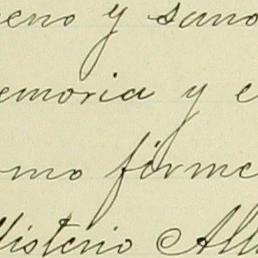 eno y sano
emoria y e
omo firme
Misterio Alt